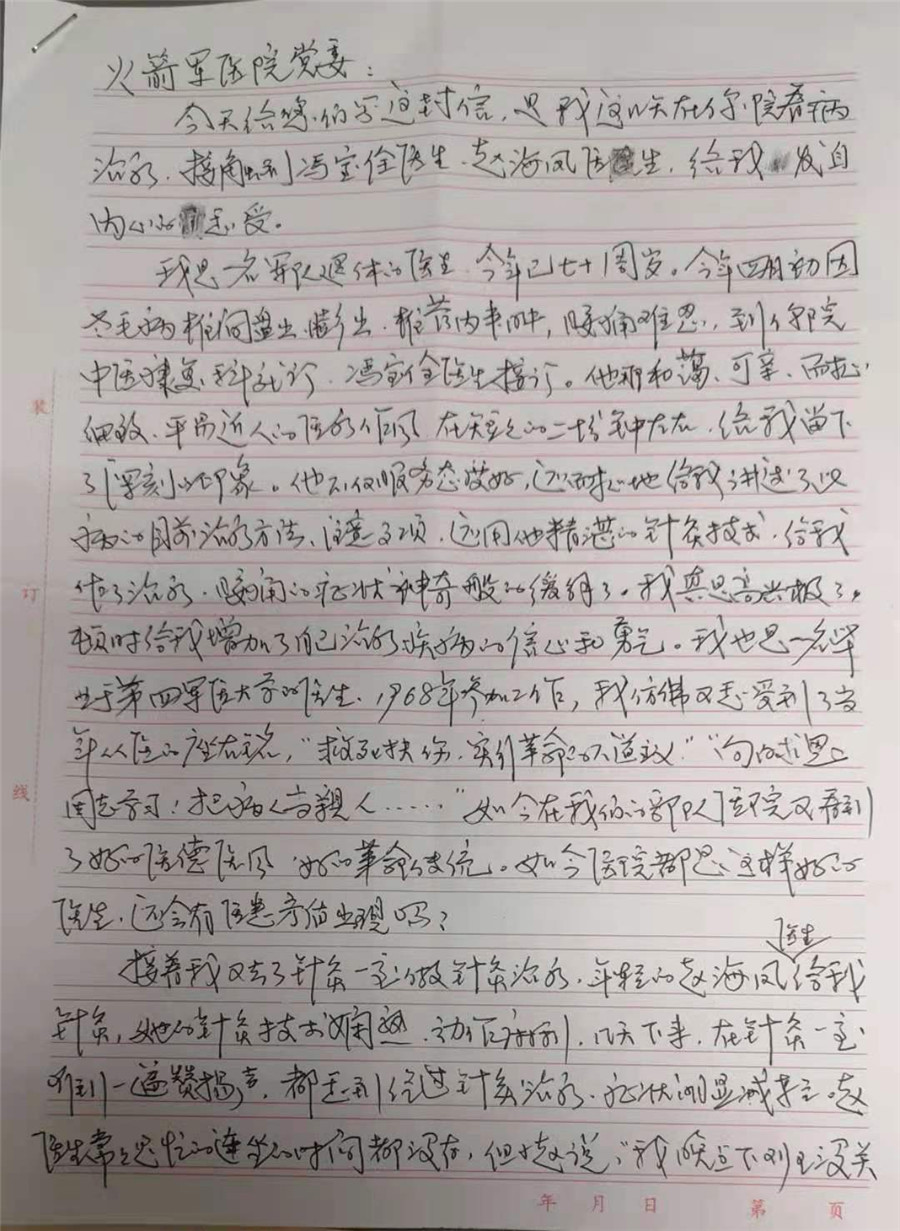 火箭军医院党委:
今天给您们写这封信,是我这几天在你院看病
治疗、接触到冯宝全医生、赵海凤医生,给我发自
内心的感受。
我是名军队退休的医生,今年已七十周岁。今年四月初因
老毛病椎间盘出膨出,腰痛难忍,到你院
中医康复科就诊,冯宝全医生接诊。他那和蔼、可亲、而耐心
细致、平易近人的医疗作风在短短的二十分钟左右,给我留下
了深刻的印象。他不仅服务态度好,还耐心地给我讲述了以
病的目前治疗方法、注意事项,还用他精湛的针灸技术,给我
做了治疗,腰痛的症状神奇般的缓解了。我真是高兴极了,
顿时给我增加了自己治疗疾病的信心和勇气。我也是一名毕
业于第四军医大学的医生、1968年参加工作,我仿佛又感受到了当
年从医的座右铭,“救死扶伤,实行革命的人道主义”“向白求恩
同志学习!把病人当亲人……”如今在我们的部队医院又看到
了好的医德医风 好的革命传统。如今医院都是这样好的
医生,还会有医患矛盾出现吗?
接着我又去了针灸一室做针灸治疗,年轻的赵海凤医生给我
针灸,她的针灸技术娴熟、动作麻利,几天下来,在针灸一室
听到一遍赞扬声,都感到经过针灸治疗,症状明显减轻。赵
医生常常是忙的连坐的时间都没有,但她说,“我晚点下班没关
装
订
线
年 月 日
第 页